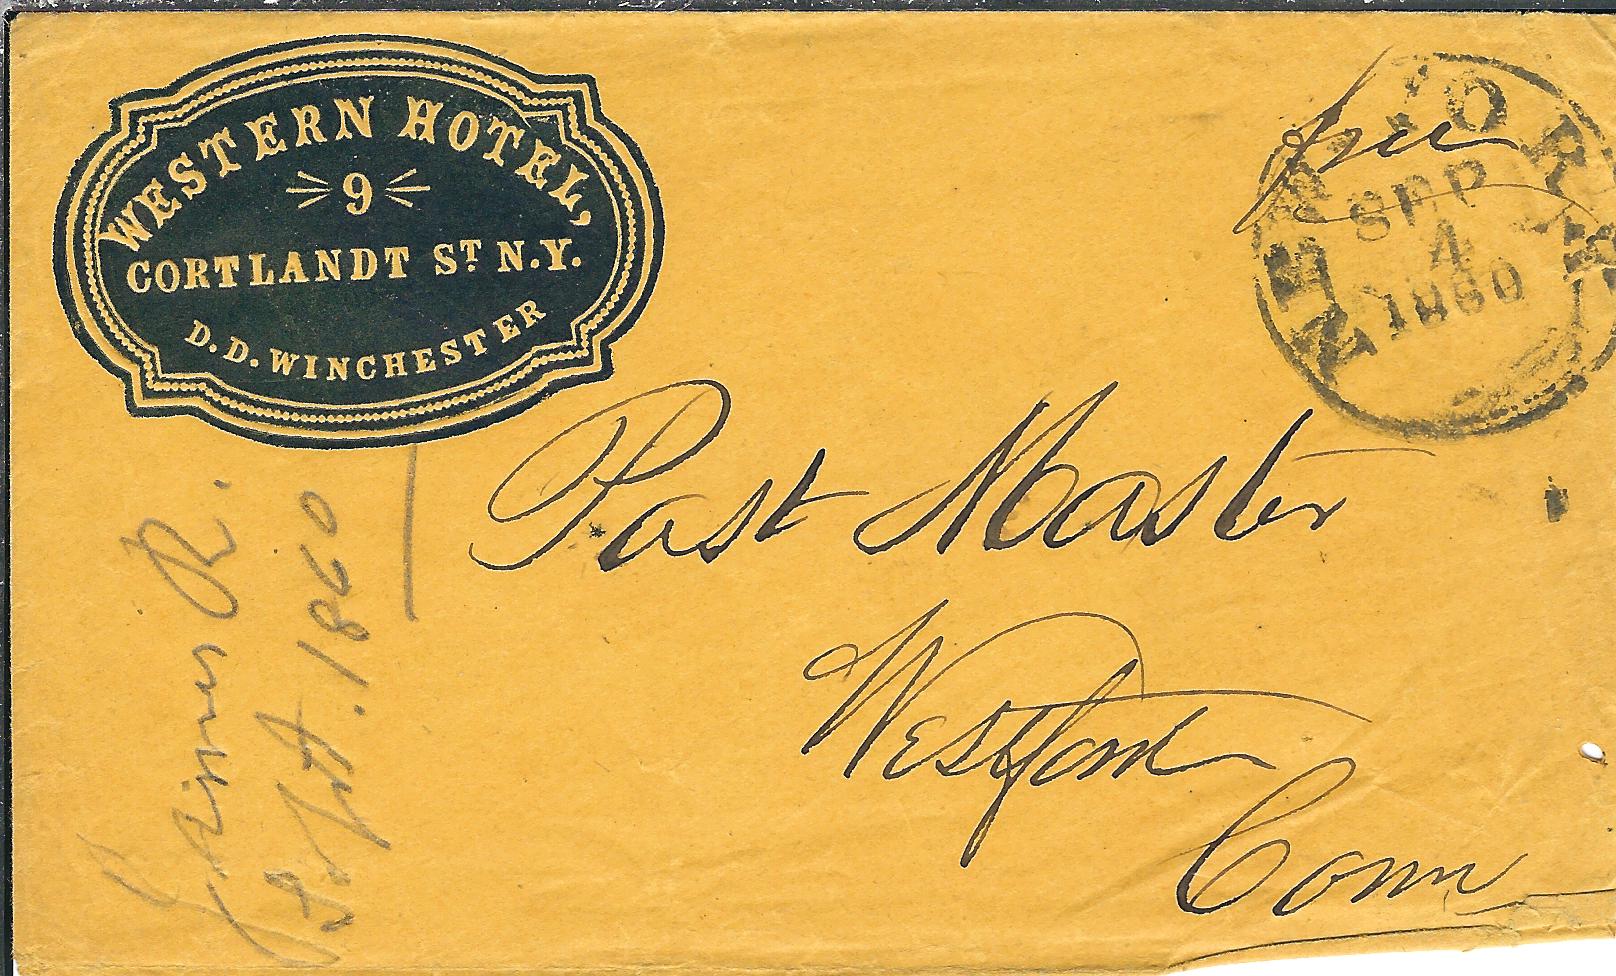 WESTERN HOTEL,
9
CORTLANDT ST. N.Y.
D.D. WINCHESTER
free
NEW YORK
SEP
4
1860
Post Master
Westford
Conn
R.
Sept. 1860